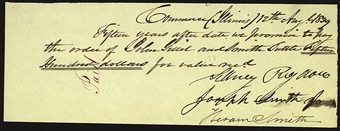 Commerce (Illinois) 12th Aug. 1839
Fifteen years after date we promise to pay
the order of John Gaed and Smith Tuttle Fifteen
Hundred dollars for value recd.
Paid
Sidney Rigdon
Joseph Smith Jr
Hiram Smith